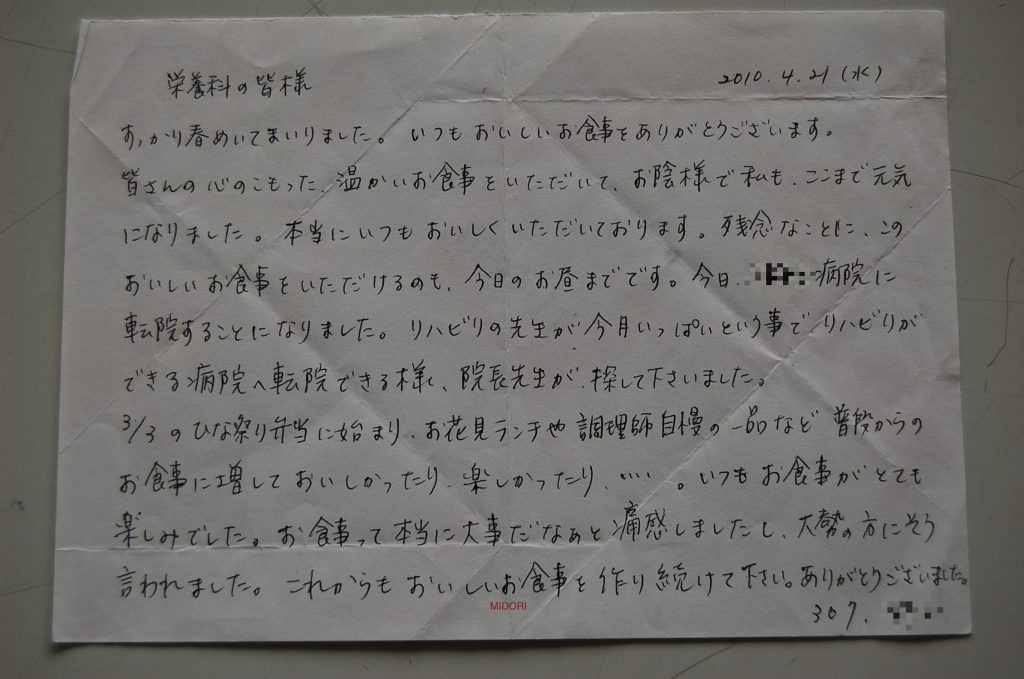 栄養科の皆様
2010.4.21(水)
すっかり春めいてまいりました。いつもおいしいお食事をありがとうございます。
皆さんの心のこもった、温かいお食事をいただいて、お陰様で私も、ここまで元気
になりました。本当にいつもおいしくいただいております。残念なことに、この
おいしいお食事をいただけるのも、今日のお昼までです。今日、病院に
転院することになりました。リハビリの先生が今月いっぱいという事で、リハビリが
できる病院へ転院できる様に、院長先生が、探して下さいました。
3/3のひな祭り弁当に始まり、お花見ランチや調理師自慢の一品など普段からの
お食事に増しておいしかったり、楽しかったり、‥‥。いつもお食事がとても
楽しみでした。お食事って本当に大事だなぁと痛感しましたし、大勢の方にそう
言われました。これからもおいしいお食事を作り続けて下さい。ありがとうございました。
MIDORI
307.